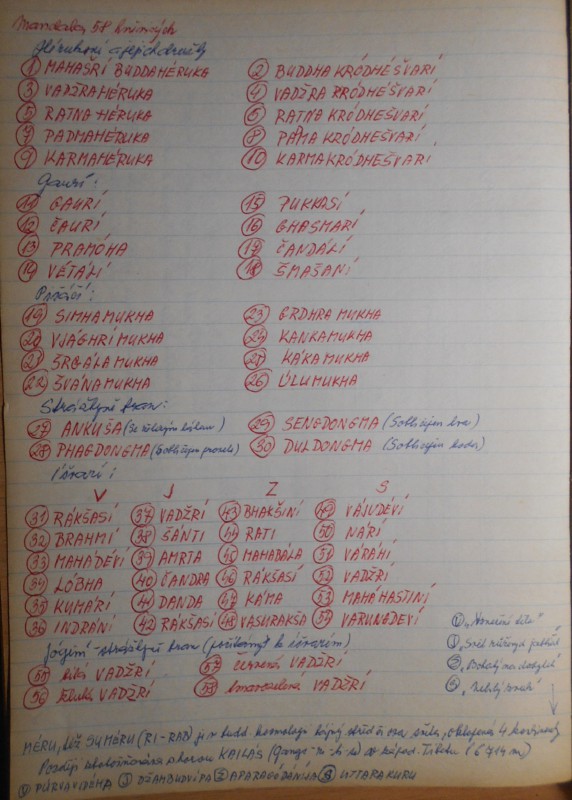 Mandala 58 hněvivých
Hérukové a jejich družky
1 MAHAŠRÍ BUDDAHÉRUKA 2 BUDDHA KRÓDHÉŠVARÍ
3 VADŽRAHÉRUKA 4 VADŽRA KRÓDHÉŠVARÍ
5 RATNA HÉRUKA 6 RATNA KRÓDHEŠVARÍ
7 PADMAHÉRUKA 8 PAMA KRÓDHEŠVARÍ
9 KARMAHÉRUKA 10 KARMAKRÓDHÉŠVARÍ
Gaurí:
11 GAURÍ 15 PUKKASÍ
12 ČAURÍ 16 GHASMARÍ
13 PRAMÓHA 17 ČANDÁLÍ
14 VÉTÁLÍ 18 ŠMAŠANÍ
Pišáčí:
19 SIMHAMUKHA 23 GRDHRA MUKHA
20 VJÁGHRÍ MUKHA 24 KANKAMUKHA
21 SRGÁLA MUKHA 25 KÁKA MUKHA
22 ŠVÁNAMUKHA 26 ÚLUMUKHA
Strážkyně bran:
27 ANKUŠA 29 SENGDONGMA (S obličejem lva)
28 PHAGDONGMA (S obličejem prasete) 30 DULDONGMA (S obličejem hada)
Íšvarí:
V J Z S
31 RÁKŠASÍ 37 VADŽRÍ 43 BHAKŠINÍ 49 VÁJUDÉVÍ
32 BRAHMÍ 38 ŠÁNTI 44 RATI 50 NÁRÍ
33 MAHÁDÉVÍ 39 AMRTA 45 MAHABÁLA 51 VÁRÁHÍ
34 LÓBHA 40 ČANDRA 46 RÁKŠASÍ 52 VADŽRÍ
35 KUMÁRÍ 41 DANDA 47 KÁMA 53 MAHÁHASTINÍ
36 INDRÁNÍ 42 RÁKŠASÍ 48 VASURAKŠA 54 VARUNADÉVÍ
Jóginí - strážkyně bran (počítány k íšvarím)
55 bílá VADŽRÍ 57 červená VADŽRÍ
56 žlutá VADŽRÍ 58 tmavozelená VADŽRÍ
MÉRU, též SUMÉRU (RI-RAB) je v budd. kosmologii bájný střed a osa světa, obklopená 4 kontinenty
Později ztotožňována s horou KAILÁS v západ. Tibetu (6714 m)
PÚRVAVIDÉHA DŽAMBUDVÍPA APARAGÓDÁNIJA UTTARAKURU